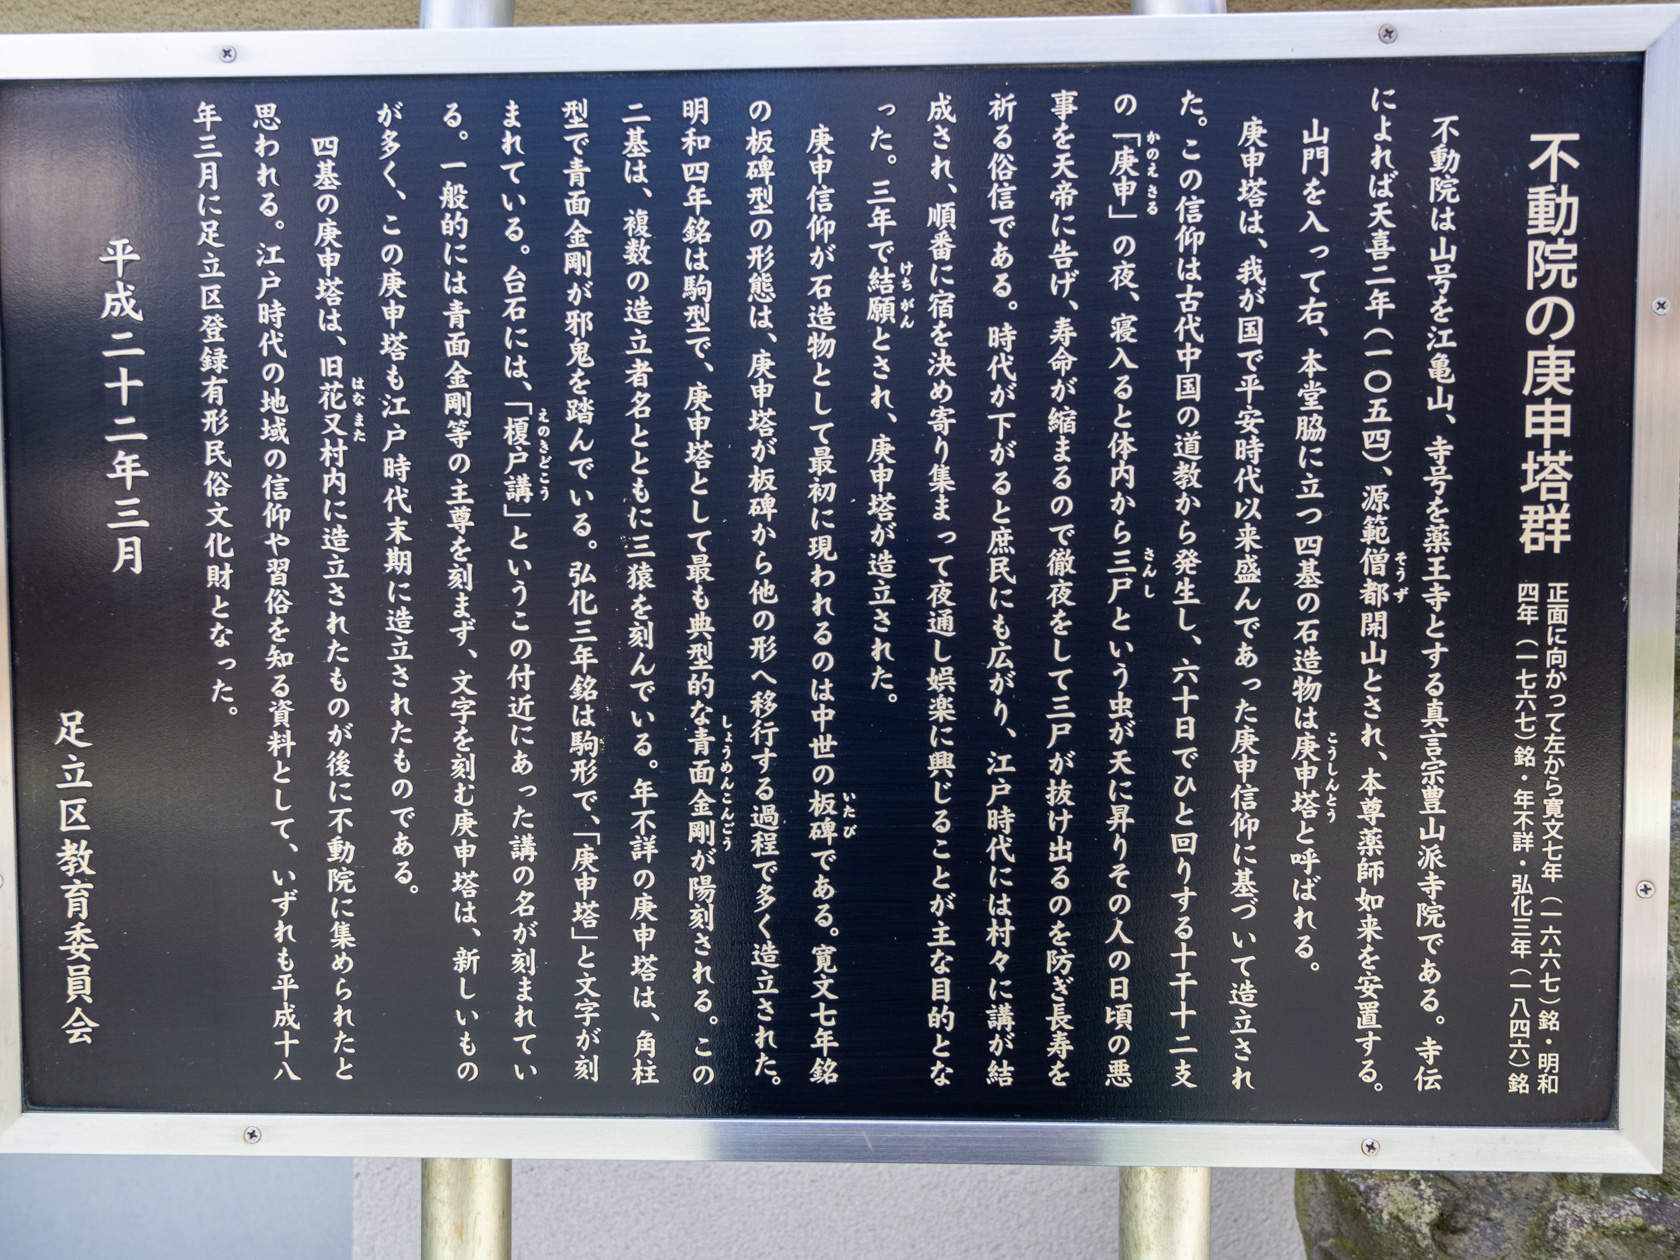 不動院の庚申塔群
正面に向かって左から寛文七年（一六六七）銘・明和
四年（一七六七）銘・年不詳・弘化三年（一八四六）銘
不動院は山号を江亀山、寺号を薬王寺とする真言宗豊山派寺院である。寺伝
によれば天喜二年（一〇五四）、源範僧都開山とされ、本尊薬師如来を安置する。
そうず
山門を入って右、本堂脇に立つ四基の石造物は庚申塔と呼ばれる。
こうしんとう
庚申塔は、我が国で平安時代以来盛んであった庚申信仰に基づいて造立され
た。この信仰は古代中国の道教から発生し、六十日でひと回りする十干十二支
の「庚申」の夜、寝入ると体内から三尸という虫が天に昇りその人の日頃の悪
かのえさる
さんし
事を天帝に告げ、寿命が縮まるので徹夜をして三尸が抜け出るのを防ぎ長寿を
祈る俗信である。時代が下がると庶民にも広がり、江戸時代には村々に講が結
成され、順番に宿を決め寄り集まって夜通し娯楽に興じることが主な目的とな
った。三年で結願とされ、庚申塔が造立された。
けちがん
庚申信仰が石造物として最初に現われるのは中世の板碑である。寛文七年銘
いたび
の板碑型の形態は、庚申塔が板碑から他の形へ移行する過程で多く造立された。
明和四年銘は駒型で、庚申塔として最も典型的な青面金剛が陽刻される。この
しょうめんこんごう
二基は、複数の造立者名とともに三猿を刻んでいる。年不詳の庚申塔は、角柱
型で青面金剛が邪鬼を踏んでいる。弘化三年銘は駒形で、「庚申塔」と文字が刻
まれている。台石には、「榎戸講」というこの付近にあった講の名が刻まれてい
えのきどこう
る。一般的には青面金剛等の主尊を刻まず、文字を刻む庚申塔は、新しいもの
が多く、この庚申塔も江戸時代末期に造立されたものである。
四基の庚申塔は、旧花又村内に造立されたものが後に不動院に集められたと
はなまた
思われる。江戸時代の地域の信仰や習俗を知る資料として、いずれも平成十八
年三月に足立区登録有形民俗文化財となった。
平成二十二年三月
足立区教育委員会